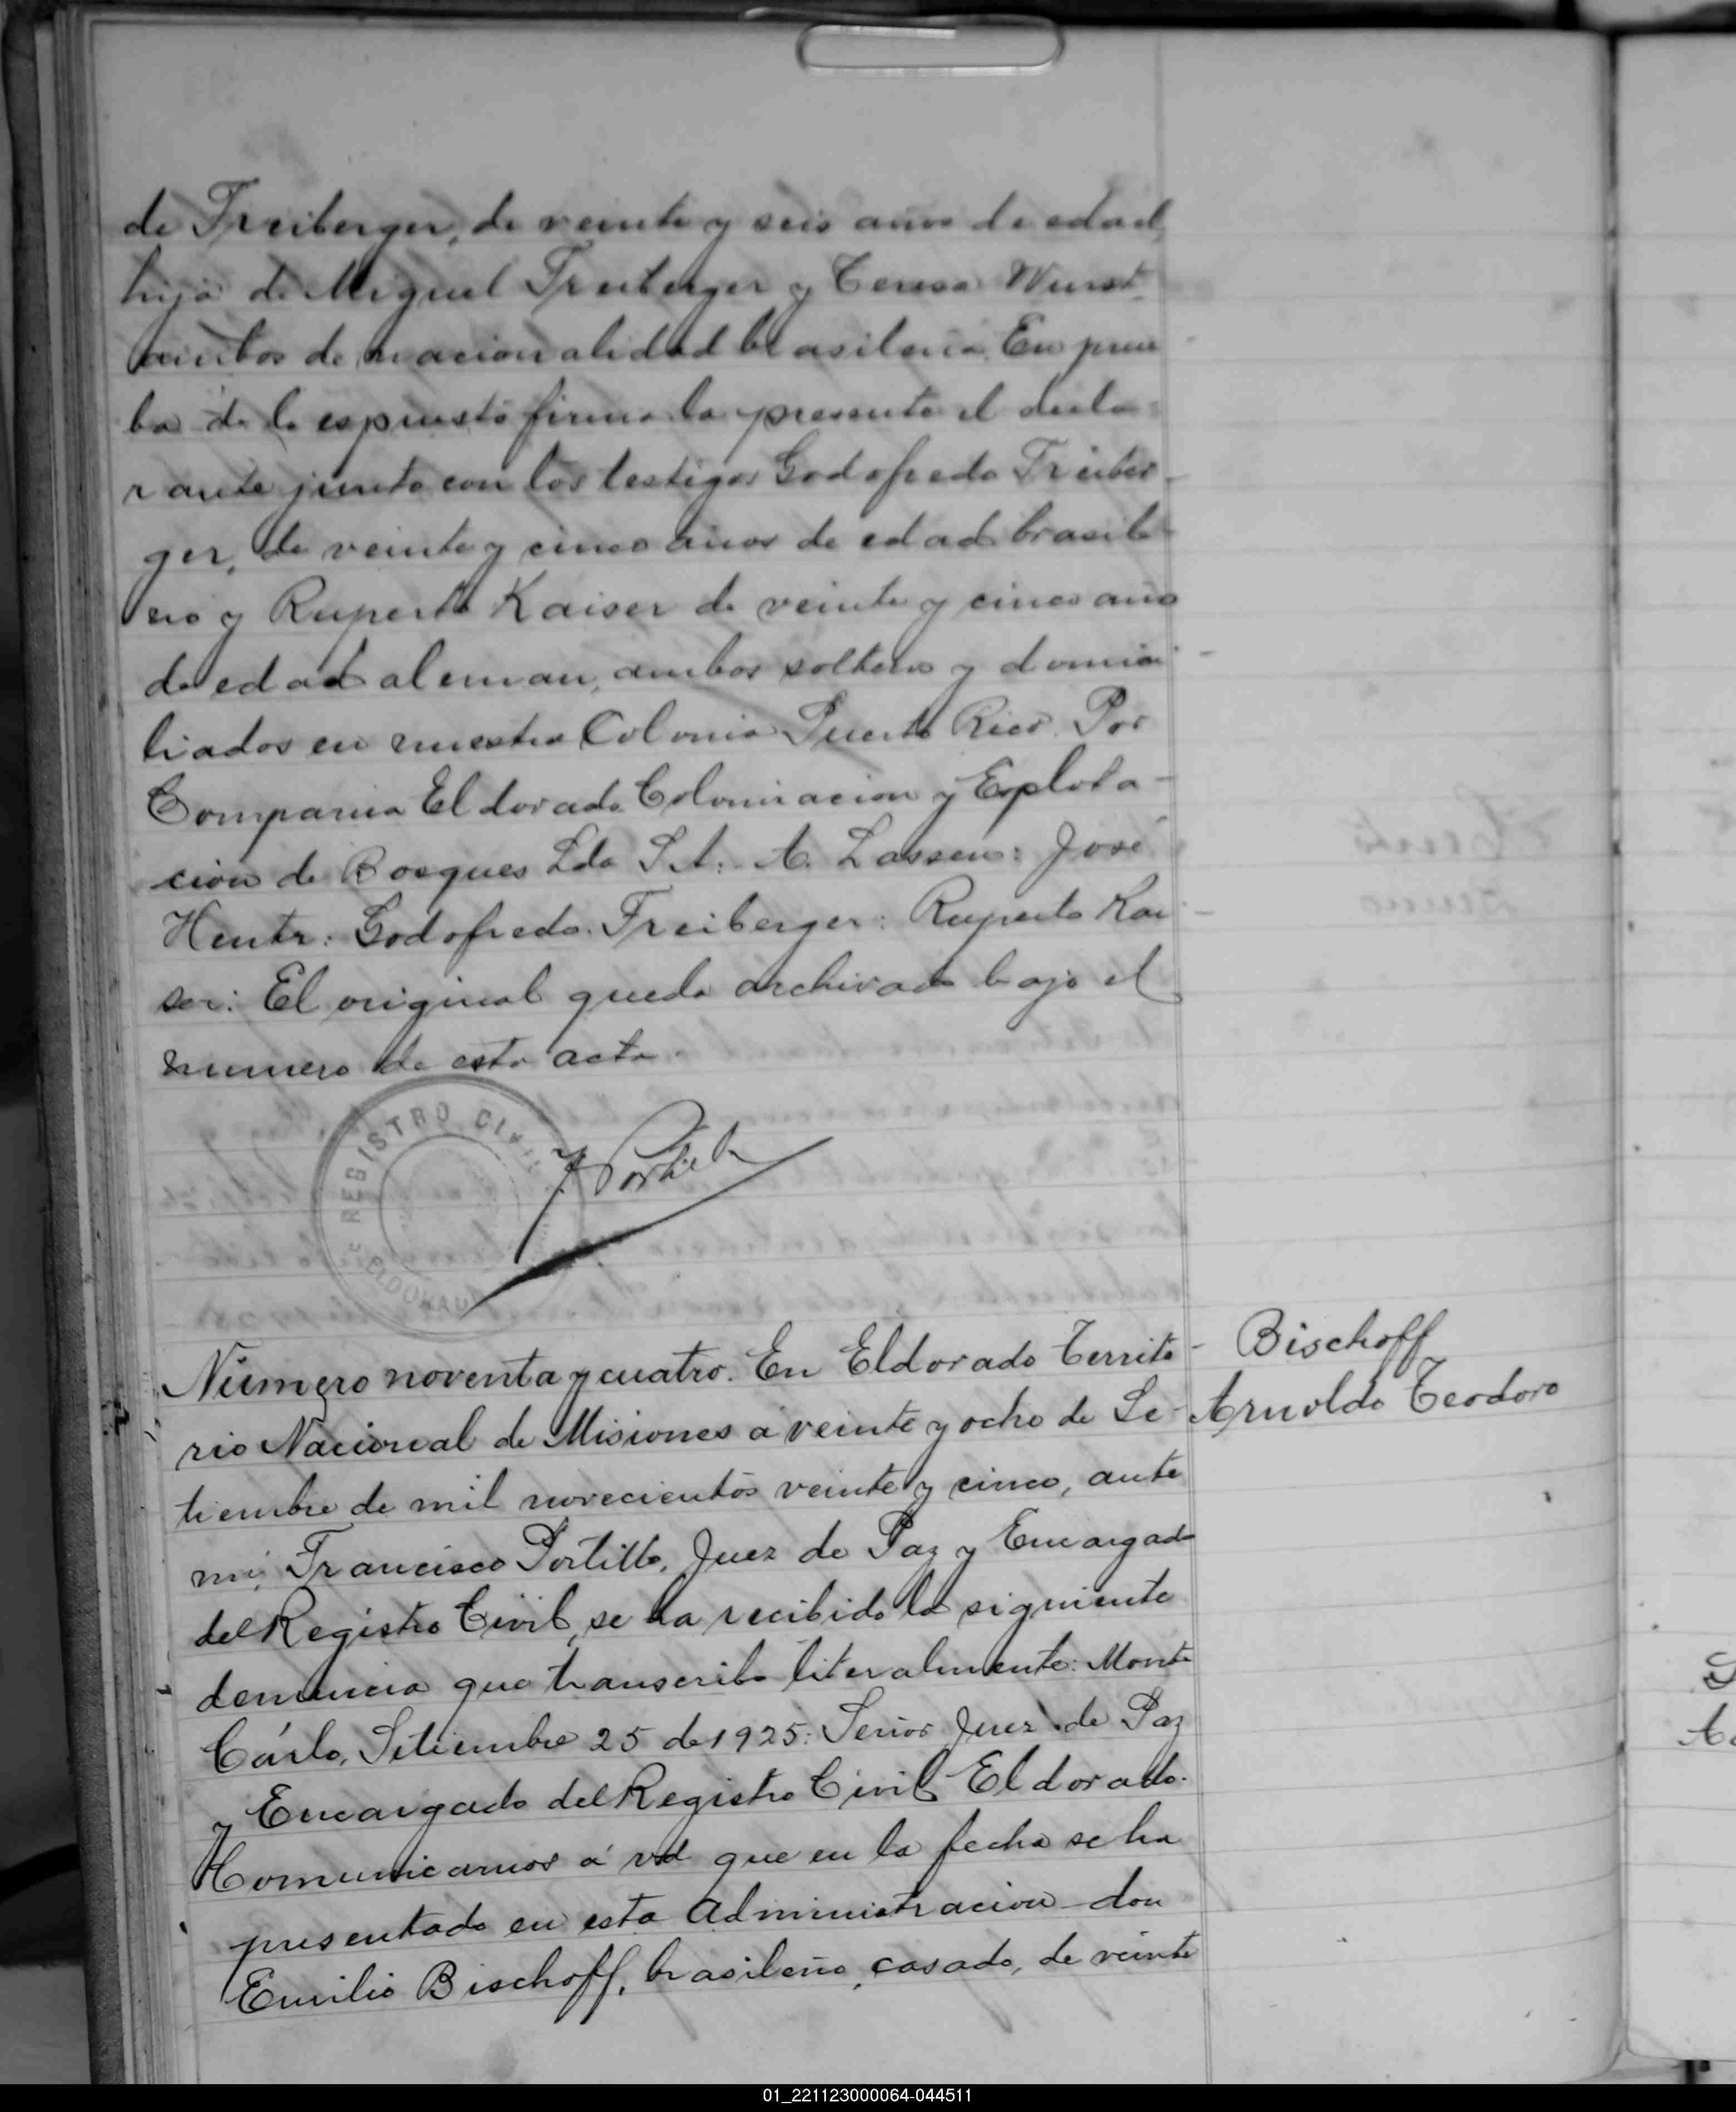 de Freiberger, de veinte y seis años de edad,
hija de Miguel Freiberger y Teresa Wurst
ambos de nacionalidad brasileña. En prue
ba de lo espuesto firma la presente el decla-
rante junto con los testigos Godofredo Freiber-
ger, de veinte y cinco años de edad brasile-
no y Ruperto Kaiser de veinte y cinco año
de edad aleman, ambos solteros y domici
liados en nuestra Colonia Puerto Rico. Por
Compania Eldorado Colonizacion y Explota-
cion de Bosques Lda S.A: A. Lassen: José
Hentz: Godofredo Freiberger: Ruperto Kai-
ser: El original queda archivado bajo el
numero de esta acta.
REGISTRO CIVIL
ELDORADO
F Portillo
Número noventa y cuatro. En Eldorado Territo-
rio Nacional de Misiones á veinte y ocho de Se-
tiembre de mil novecientos veinte y cinco, ante
mi, Francisco Portillo, Juez de Paz y Encargado
del Registro Civil, se ha recibido la siguiente
denuncia que transcribo literalmente: Monte
Cárlo, Setiembre 25 de 1925: Señor Juez de Paz
y Encargado del Registro Civil Eldorado.
Comunicamos á vd que en la fecha se ha
presentado en esta Administracion don
Emilio Bischoff, brasileño, casado, de veinte
Bischoff
Arnoldo Teodoro
01_221123000064-044511